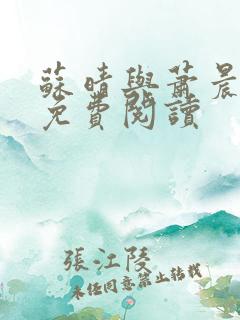 蘇晴與蕭晨
免費閱讀
張江陵
未經同意禁止转载